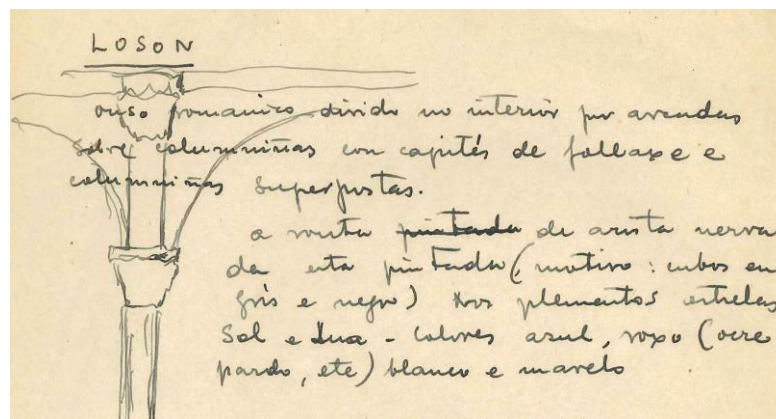 LOSON
ouso romanico divido no interior por arcadas
sobre columniñas con capités de follaxe e
columniñas superpostas.
a vouta pintada de arista nerva
da esta pintada (motivo: cubos en
gris e negro) Nos plementos estrelas
Sol e Lua - colores azul, roxo (ocre
pardo, etc) blanco e marelo